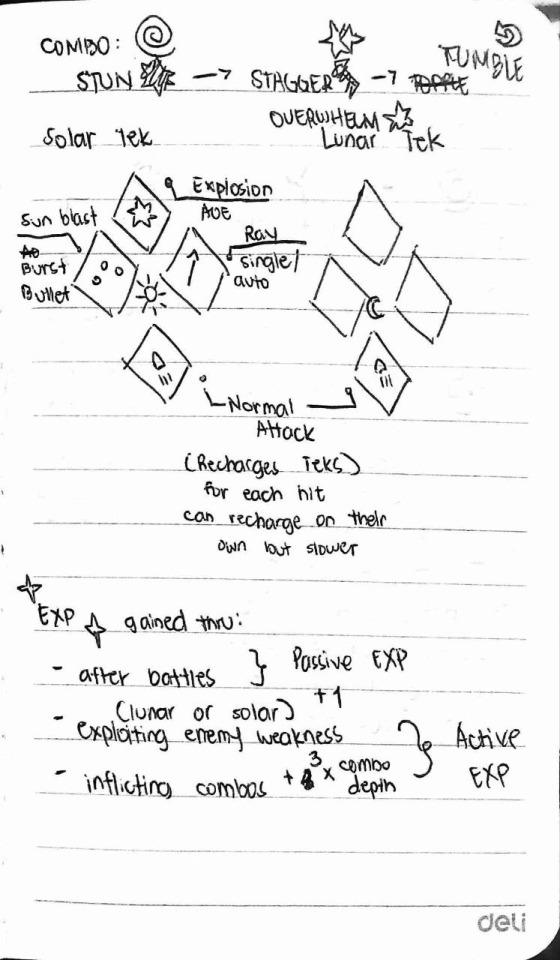 COMBO:
STUN → STAGGER → TOPPLE TUMBLE
OVERWHELM
Solar Tek
Lunar Tek
Explosion
AOE
Sun blast
Ao
Burst
Bullet
Ray
single/
auto
Normal
Attack
(Recharges Teks)
for each hit
can recharge on their
own but slower
EXP gained thru:
- after battles } Passive EXP
(lunar or solar) +1
- exploiting enemy weakness
- inflicting combos + 3 x combo depth } Active EXP
deli